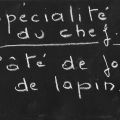 spécialité
du chef.
âté de fo
de lapin.